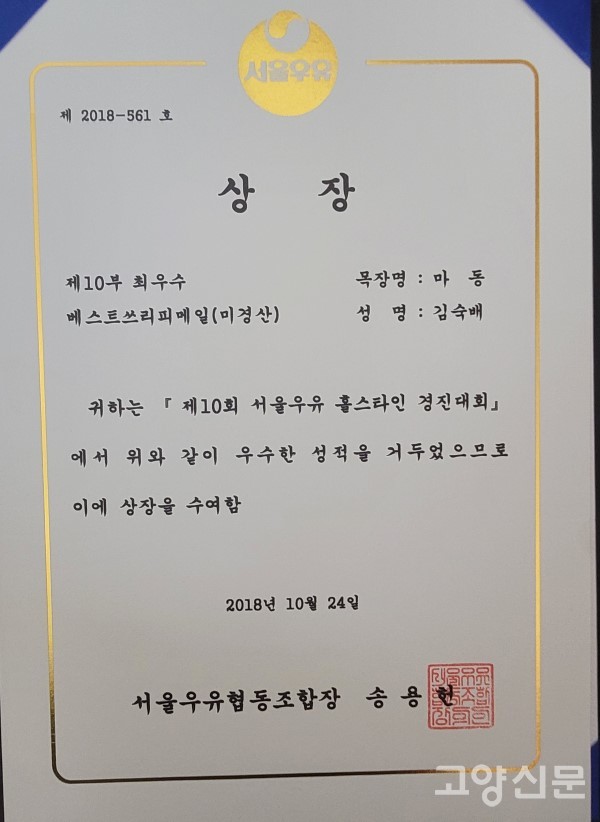 서울우유
제 2018-561 호
상 장
제10부 최우수 목장명 : 마 동
베스트쓰리피메일(미경산) 성 명 : 김숙배
귀하는 『 제10회 서울우유 홀스타인 경진대회』
에서 위와 같이 우수한 성적을 거두었으므로
이에 상장을 수여함
2018년 10월 24일
서울우유협동조합장 송 용 헌
고양신문